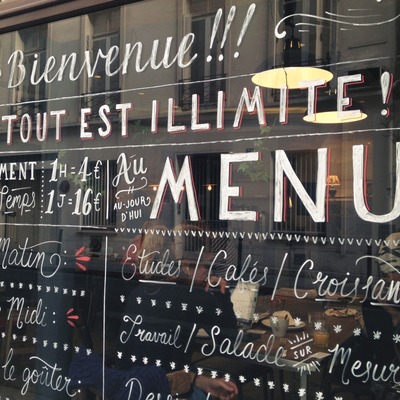 Bienvenue!!!
TOUT EST ILLIMITE!
MENT 1H=4€
Temps 1J=16€
Au MENU
AUJOURD'HUI
Matin: Etudes / Cafés / Croissan
Midi: Travail / Salade SUR Mesur
le goûter: Dessi